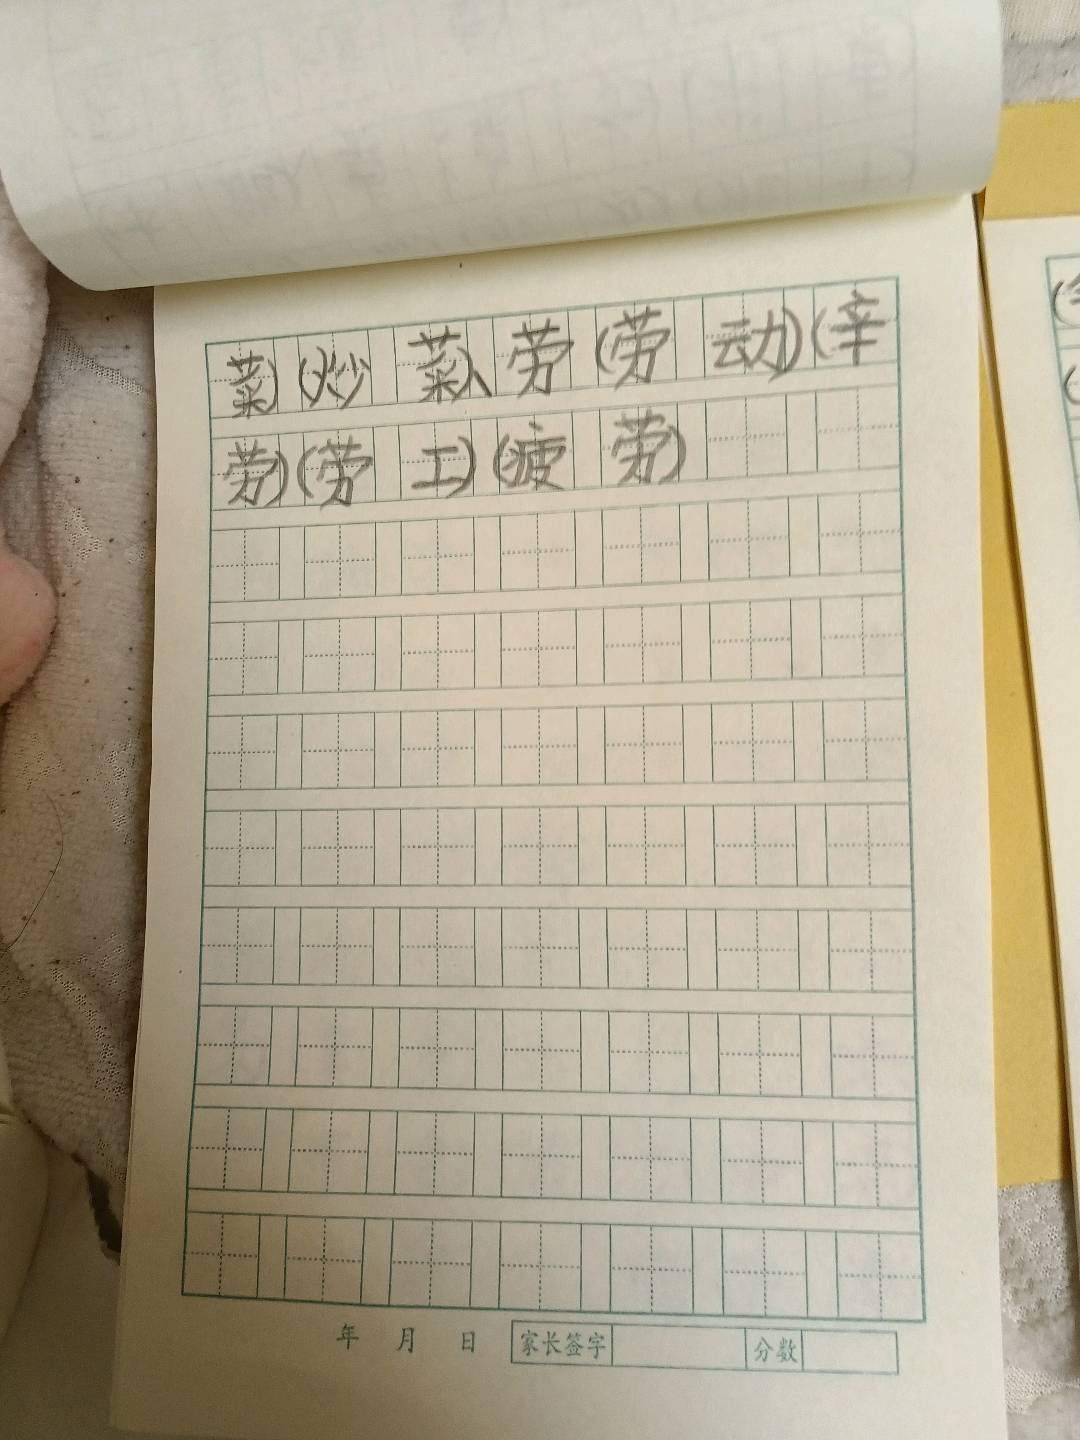 菜)(炒菜)、劳(劳动)(辛
劳)(劳工)(疲劳)
年 月 日 家长签字 分数